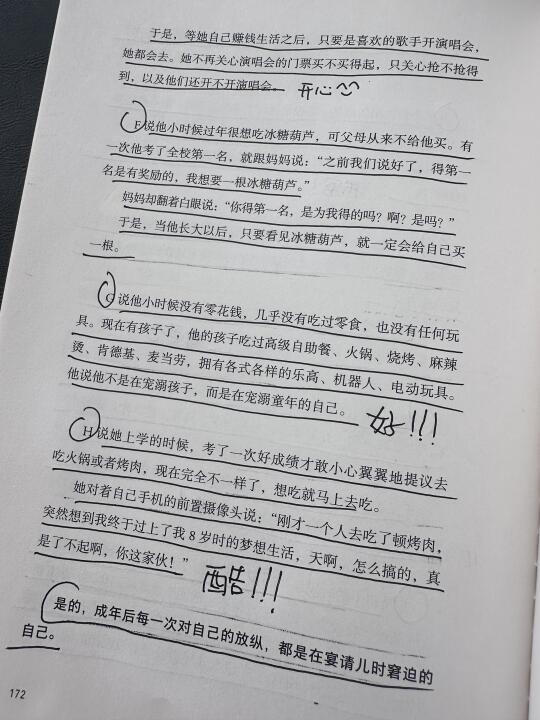 于是，等她自己赚钱生活之后，只要是喜欢的歌手开演唱会，
她都会去。她不再关心演唱会的门票买不买得起，只关心抢不抢得
到，以及他们还开不开演唱会。 开心
F说他小时候过年很想吃冰糖葫芦，可父母从来不给他买。有
一次他考了全校第一名，就跟妈妈说：“之前我们说好了，得第一
名是有奖励的，我想要一根冰糖葫芦。”
妈妈却翻着白眼说：“你得第一名，是为我得的吗？啊？是吗？”
于是，当他长大以后，只要看见冰糖葫芦，就一定会给自己买
一根。
G说他小时候没有零花钱，几乎没有吃过零食，也没有任何玩
具。现在有孩子了，他的孩子吃过高级自助餐、火锅、烧烤、麻辣
烫、肯德基、麦当劳，拥有各式各样的乐高、机器人、电动玩具。
他说他不是在宠溺孩子，而是在宠溺童年的自己。 好!!!
H说她上学的时候，考了一次好成绩才敢小心翼翼地提议去
吃火锅或者烤肉，现在完全不一样了，想吃就马上去吃。
她对着自己手机的前置摄像头说：“刚才一个人去吃了顿烤肉，
突然想到我终于过上了我8岁时的梦想生活，天啊，怎么搞的，真
是了不起啊，你这家伙！” 酷!!!
是的，成年后每一次对自己的放纵，都是在宴请儿时窘迫的
自己。
172